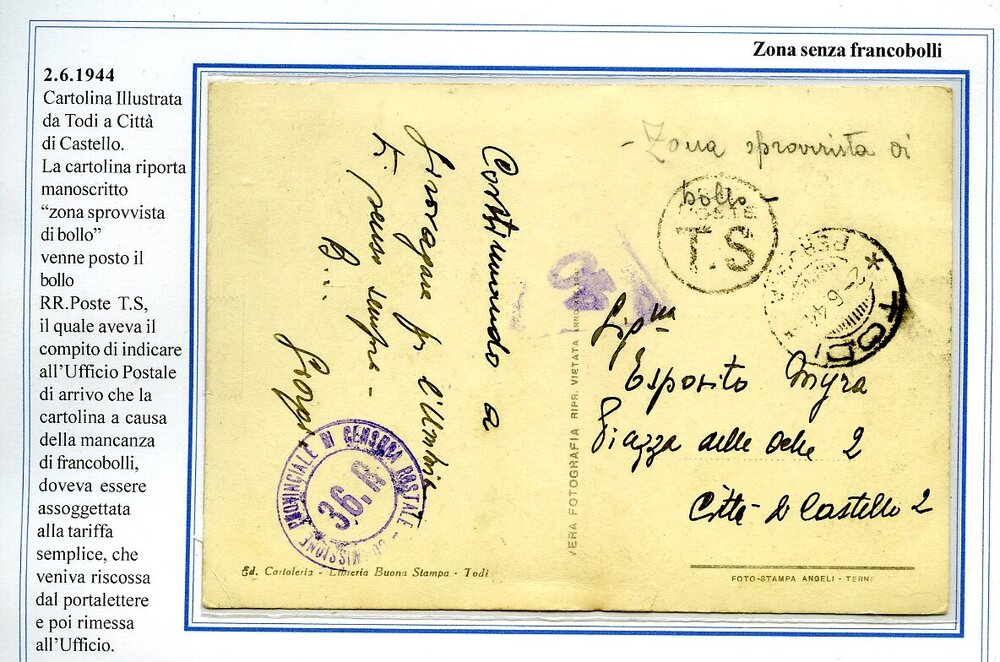 Zona senza francobolli
2.6.1944
Cartolina Illustrata
da Todi a Città
di Castello.
La cartolina riporta
manoscritto
“zona sprovvista
di bollo”
venne posto il
bollo
RR.Poste T.S,
il quale aveva il
compito di indicare
all’Ufficio Postale
di arrivo che la
cartolina a causa
della mancanza
di francobolli,
doveva essere
assoggettata
alla tariffa
semplice, che
veniva riscossa
dal portalettere
e poi rimessa
all’Ufficio.
- Zona sprovvista di
bollo -
POSTE
T.S
* TODI *
PERUGIA
2-6-44
Continuando a
girovagare per l'Umbria
Ti penso sempre -
B...
40
COMMISSIONE PROVINCIALE DI CENSURA POSTALE -
36.R
VERA FOTOGRAFIA RIPR. VIETATA
Sig.na
Esposito Myra
Piazza delle Oche 2
Città di Castello 2
Ed. Cartoleria - Libreria Buona Stampa - Todi
FOTO-STAMPA ANGELI - TERNI